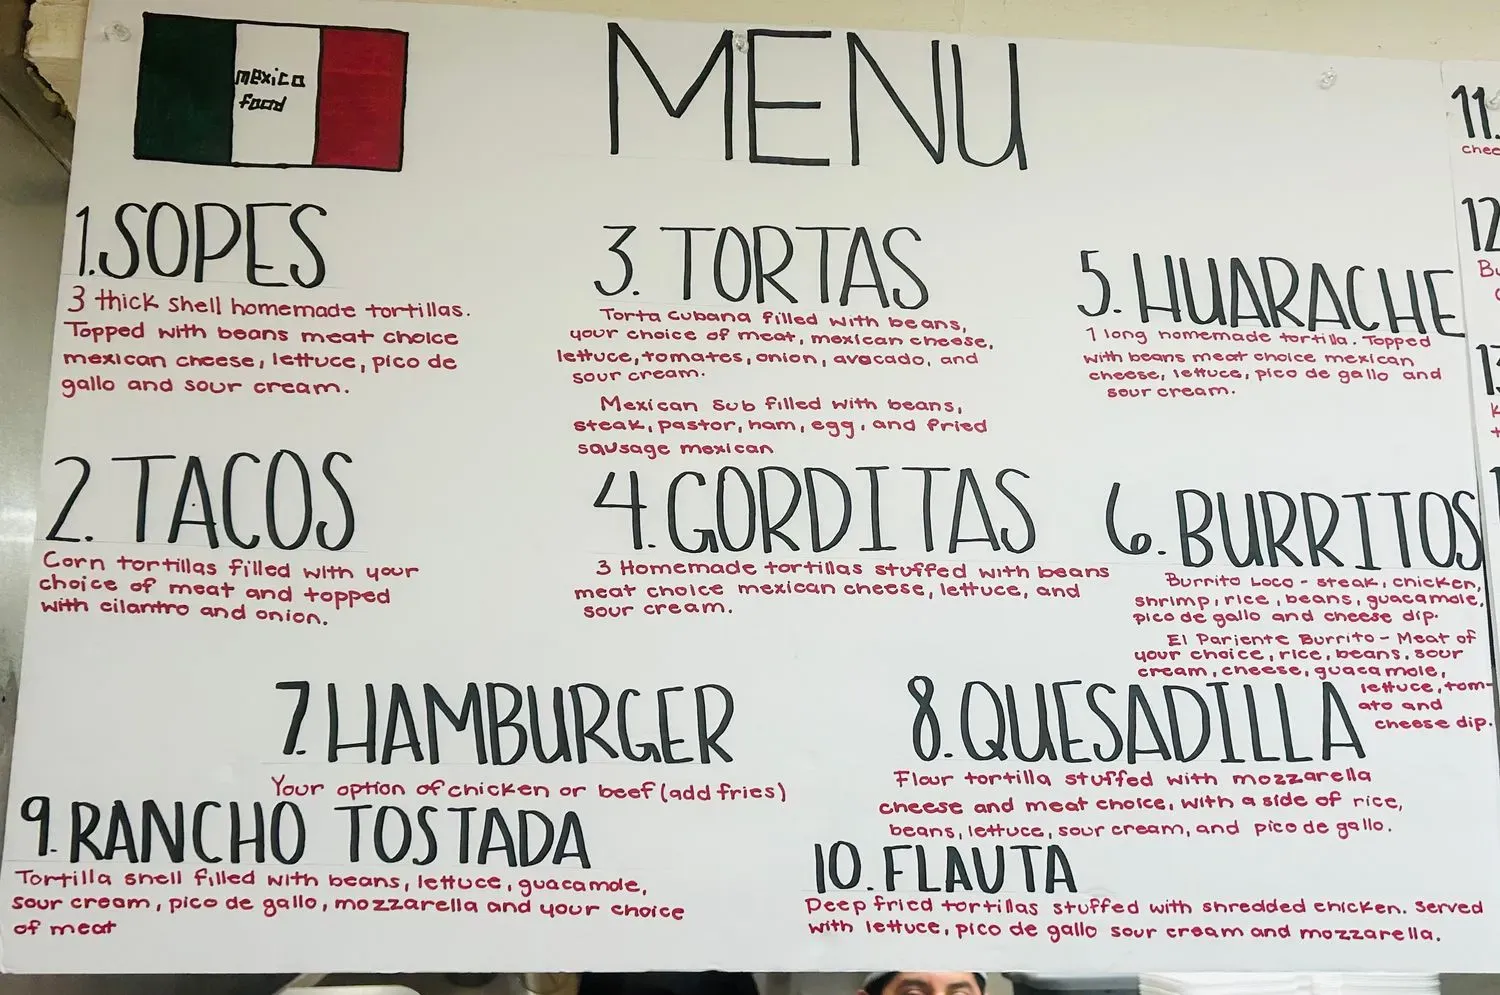 mexica
food
MENU
1. SOPES
3 thick shell homemade tortillas.
Topped with beans meat choice
mexican cheese, lettuce, pico de
gallo and sour cream.
2. TACOS
Corn tortillas filled with your
choice of meat and topped
with cilantro and onion.
3. TORTAS
Torta cubana filled with beans,
your choice of meat, mexican cheese,
lettuce, tomates, onion, avacado, and
sour cream.
Mexican Sub filled with beans,
steak, pastor, ham, egg, and fried
sausage mexican
4. GORDITAS
3 Homemade tortillas stuffed with beans
meat choice mexican cheese, lettuce, and
sour cream.
5. HUARACHE
1 long homemade tortilla. Topped
with beans meat choice mexican
cheese, lettuce, pico de gallo and
sour cream.
6. BURRITOS
Burrito Loco - steak, chicken,
shrimp, rice, beans, guacamole,
pico de gallo and cheese dip.
El Pariente Burrito - Meat of
your choice, rice, beans, sour
cream, cheese, guacamole,
lettuce, tom-
ato and
cheese dip.
7. HAMBURGER
Your option of chicken or beef (add fries)
8. QUESADILLA
Flour tortilla stuffed with mozzarella
cheese and meat choice, with a side of rice,
beans, lettuce, sour cream, and pico de gallo.
9. RANCHO TOSTADA
Tortilla shell filled with beans, lettuce, guacamole,
sour cream, pico de gallo, mozzarella and your choice
of meat
10. FLAUTA
Deep fried tortillas stuffed with shredded chicken. Served
with lettuce, pico de gallo sour cream and mozzarella.
11.
12